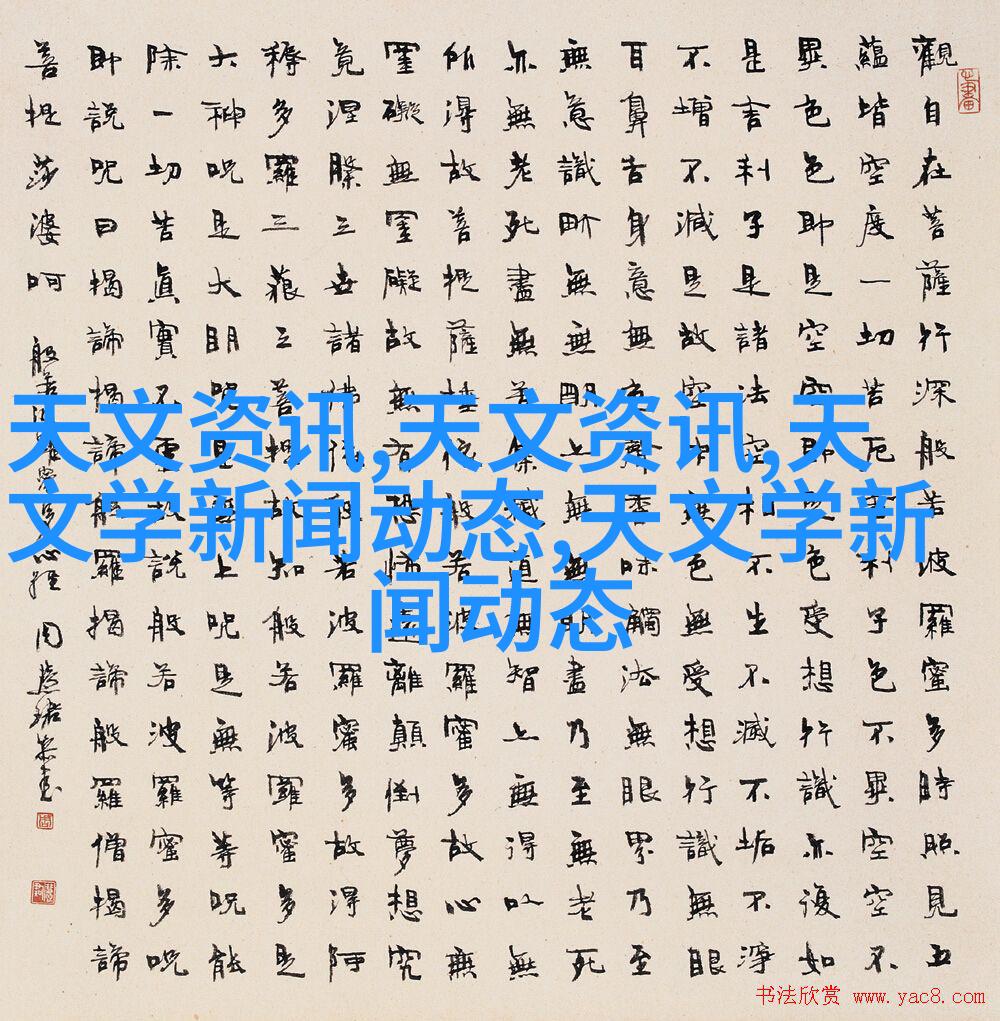 觀自在菩薩行深般若波羅蜜多時照見五
蘊皆空度一切苦厄舍利子色不異空空不
異色色即是空空即是色受想行識亦復如
是舍利子是諸法空相不生不滅不垢不淨
不增不減是故空中無色無受想行識無眼
耳鼻舌身意無色聲香味觸法無眼界乃至
無意識界無無明亦無無明盡乃至無老死
亦無老死盡無苦集滅道無智亦無得以無
所得故菩提薩埵依般若波羅蜜多故心無
罣礙無罣礙故無有恐怖遠離顛倒夢想究
竟涅槃三世諸佛依般若波羅蜜多故得阿
耨多羅三藐三菩提故知般若波羅蜜多是
大神咒是大明咒是無上咒是無等等咒能
除一切苦真實不虛故說般若波羅蜜多咒
即說咒曰揭諦揭諦般羅揭諦般羅僧揭諦
菩提莎婆呵 般若波羅蜜多心經 周慧珺恭書
天文资讯,天文资讯,天
文学新闻动态,天文学新
闻动态
书法欣赏 www.yac8.com